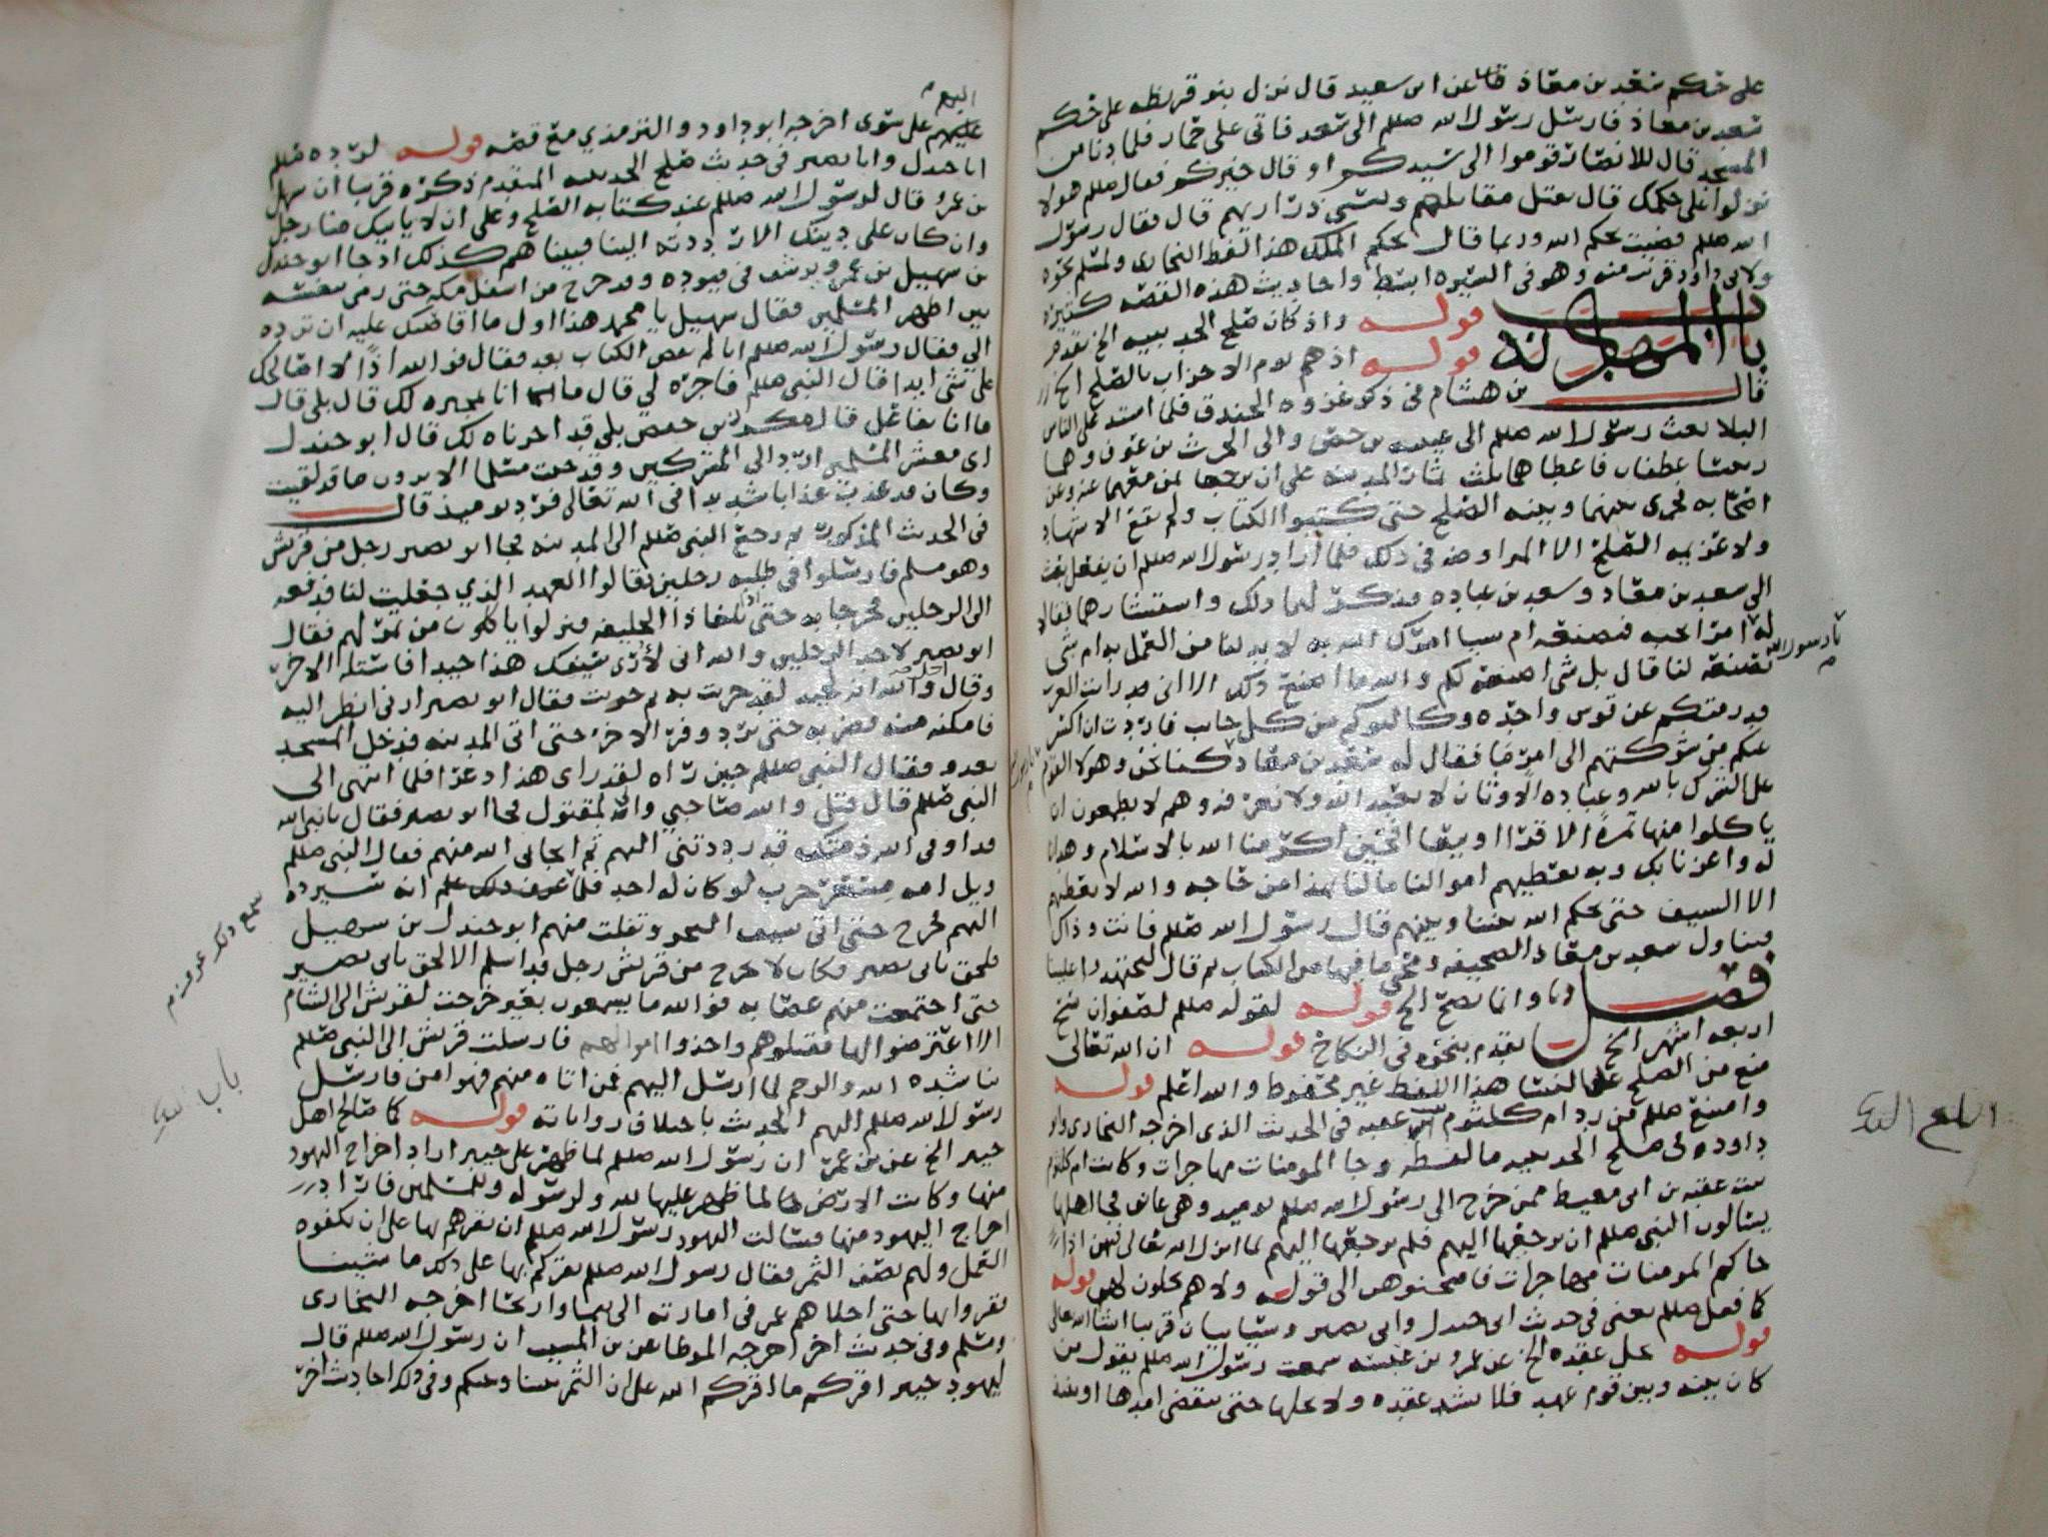 على حكم سعد بن معاذ قلنا عن ابى سعيد قال نزل بنو قريظه على حكم
سعد بن معاذ فارسل رسول الله صللم الى سعد فاتى على حمار فلما دنا من
المسجد قال للانصار قوموا الى سيدكم او قال خيركم فقال صللم هولا
نزلوا على حكمك قال نقتل مقاتلهم ونسبي ذراريهم قال فقال رسول
الله صللم قضيت بحكم الله وربما قال بحكم الملك هذا لفظ البخارى ولمسلم نحوه
ولابى داود قريب منه وهو فى السيره ابسط واحاديث هذه القصه كثيره
باب
المهادنه قوله واذ كان صلح الحديبيه الخ تقدم
قوله اذ هم يوم الاحزاب بالصلح الخ
قال بن هشام فى ذكر غزوه الخندق فلما اشتد على الناس
البلا بعث رسول الله صللم الى عيينه بن حصن والى الحرث بن عوف وهما
رييسا غطفان فاعطاهما ثلث ثمار المدينه على ان يرجعا بمن معهما عنه وعن
اصحابه فجرى بينهما وبينه الصلح حتى كتبوا الكتاب ولم تقع الاشهاد
ولا عزيمه الصلح الا المراوضه فى ذلك فلما اراد رسول الله صللم ان يفعل بعث
الى سعد بن معاذ وسعد بن عباده فذكر لهما ذلك واستشارهما فقالا
له يا رسول الله امرا تحبه فنصنعه ام شيا امرك الله به لا بد لنا من العمل به ام شى
تصنعه لنا قال بل شى اصنعه لكم والله ما اصنع ذلك الا انى رايت العرب
قد رمتكم عن قوس واحده وكالبوكم من كل جانب فاردت ان اكسر
عنكم من شوكتهم الى امر ما فقال له سعد بن معاذ يا رسول الله قد كنا نحن وهولا القوم
على الشرك بالله وعباده الاوثان لا نعبد الله ولا نعرفه وهم لا يطمعون ان
ياكلوا منها تمره الا قرا او بيعا افحين اكرمنا الله بالاسلام وهدانا
له واعزنا بك وبه نعطيهم اموالنا مالنا بهذا من حاجه والله لا نعطيهم
الا السيف حتى يحكم الله بيننا وبينهم قال رسول الله صللم فانت وذاك
فتناول سعد بن معاذ الصحيفه ومحى ما فيها من الكتاب ثم قال ليجتهدوا علينا
فصل وانما يصح الخ قوله لقوله صللم لصفوان سح
اربعه اشهر الخ تقدم بنحوه فى النكاح قوله ان الله تعالى
منع من الصلح على النسا هذا اللفظ غير محفوظ والله اعلم قوله
وامتنع صللم من رد ام كلثوم بنت عقبه فى الحديث الذى اخرجه البخارى وابو
داود فى صلح الحديبيه ما لفظه وجا المومنات مهاجرات وكانت ام كلثوم
بنت عقبه بن ابى معيط ممن خرج الى رسول الله صللم يوميذ وهى عاتق فجا اهلها
يسالون النبى صللم ان يرجعها اليهم فلم يرجعها اليهم لما انزل الله تعالى فيهن اذا
جاكم المومنات مهاجرات فامتحنوهن الى قوله ولا هم يحلون لهن قوله
كما فعل صللم يعنى فى حديث ابى جندل وابى بصير وسياتيان قريبا انشا الله تعالى
قوله يحل عقده الخ عن عمرو بن عبسه سمعت رسول الله صللم يقول من
كان بينه وبين قوم عهد فلا يشد عقده ولا يحلها حتى ينقضى امدها او ينبذ
اليهم
عليهم على سوى اخرجه ابو داود والترمذي مع قصه قوله لرده صللم
ابا جندل وابا بصير فى حديث صلح الحديبيه المتقدم ذكره قريبا ان سهيل
بن عمرو قال لرسول الله صللم عند كتابه الصلح وعلى ان لا ياتيك منا رجل
وان كان على دينك الا رددته الينا فبينا هم كذلك اذ جا ابو جندل
بن سهيل بن عمرو يرسف فى قيوده وقد خرج من اسفل مكه حتى رمى بنفسه
بين اظهر المسلمين فقال سهيل يا محمد هذا اول ما اقاضيك عليه ان ترده
الي فقال رسول الله صللم انا لم نقض الكتاب بعد فقال فوالله اذا لا اصالحك
على شى ابدا قال النبى صللم فاجزه لي قال ما انا بمجيره لك قال بلى قال
ما انا بفاعل قال مكرز بن حفص بلى قد اجرناه لك قال ابو جندل
اى معشر المسلمين ارد الى المشركين وقد جيت مسلما الا ترون ما قد لقيت
وكان قد عذب عذابا شديدا فى الله تعالى فرد يوميذ قال
فى الحديث المذكور ثم رجع النبى صللم الى المدينه فجا ابو بصير رجل من قريش
وهو مسلم فارسلوا فى طلبه رجلين فقالوا العهد الذي جعلت لنا فدفعه
الى الرجلين فخرجا به حتى اذا بلغا ذا الحليفه فنزلوا ياكلون من تمر لهم فقال
ابو بصير لاحد الرجلين والله انى لارى سيفك هذا جيدا فاستله الاخر
وقال اجل والله انه لجيد لقد جربت به ثم جربت فقال ابو بصير ارنى انظر اليه
فامكنه منه فضربه حتى برد وفر الاخر حتى اتى المدينه فدخل المسجد
يعدو فقال النبى صللم حين راه لقد راى هذا ذعرا فلما انتهى الى
النبى صللم قال قتل والله صاحبي وانى لمقتول فجا ابو بصير فقال يا نبى الله
قد اوفى الله ذمتك قد رددتني اليهم ثم انجانى الله منهم فقال النبى صللم
ويل امه مسعر حرب لو كان له احد فلما سمع ذلك عرف علم انه سيرده
اليهم فخرج حتى اتى سيف البحر وتفلت منهم ابو جندل بن سهيل
فلحق بابى بصير فكان لا يخرج من قريش رجل قد اسلم الا لحق بابى بصير
حتى اجتمعت منهم عصابه فوالله ما يسمعون بعير خرجت لقريش الى الشام
الا اعترضوا لها فقتلوهم واخذوا اموالهم فارسلت قريش الى النبى صللم
تناشده الله والرحم لما ارسل اليهم فمن اتاه منهم فهو امن فارسل
رسول الله صللم اليهم الحديث باختلاف رواياته قوله كما صالح اهل
خيبر الخ عن بن عمر ان رسول الله صللم لما ظهر على خيبر اراد اخراج اليهود
منها وكانت الارض لما ظهر عليها لله ولرسوله وللمسلمين فاراد
اخراج اليهود منها فسالت اليهود رسول الله صللم ان يقرهم بها على ان يكفوه
العمل ولهم نصف الثمر فقال رسول الله صللم نقركم بها على ذلك ما شينا
فقروا بها حتى اجلاهم عمر فى امارته الى تيما واريحا اخرجه البخارى
ومسلم وفى حديث اخر اخرجه الموطا عن بن المسيب ان رسول الله صللم قال
ليهود خيبر اقركم ما اقركم الله على ان الثمر بيننا وبينكم وفى ذلك احاديث اخر